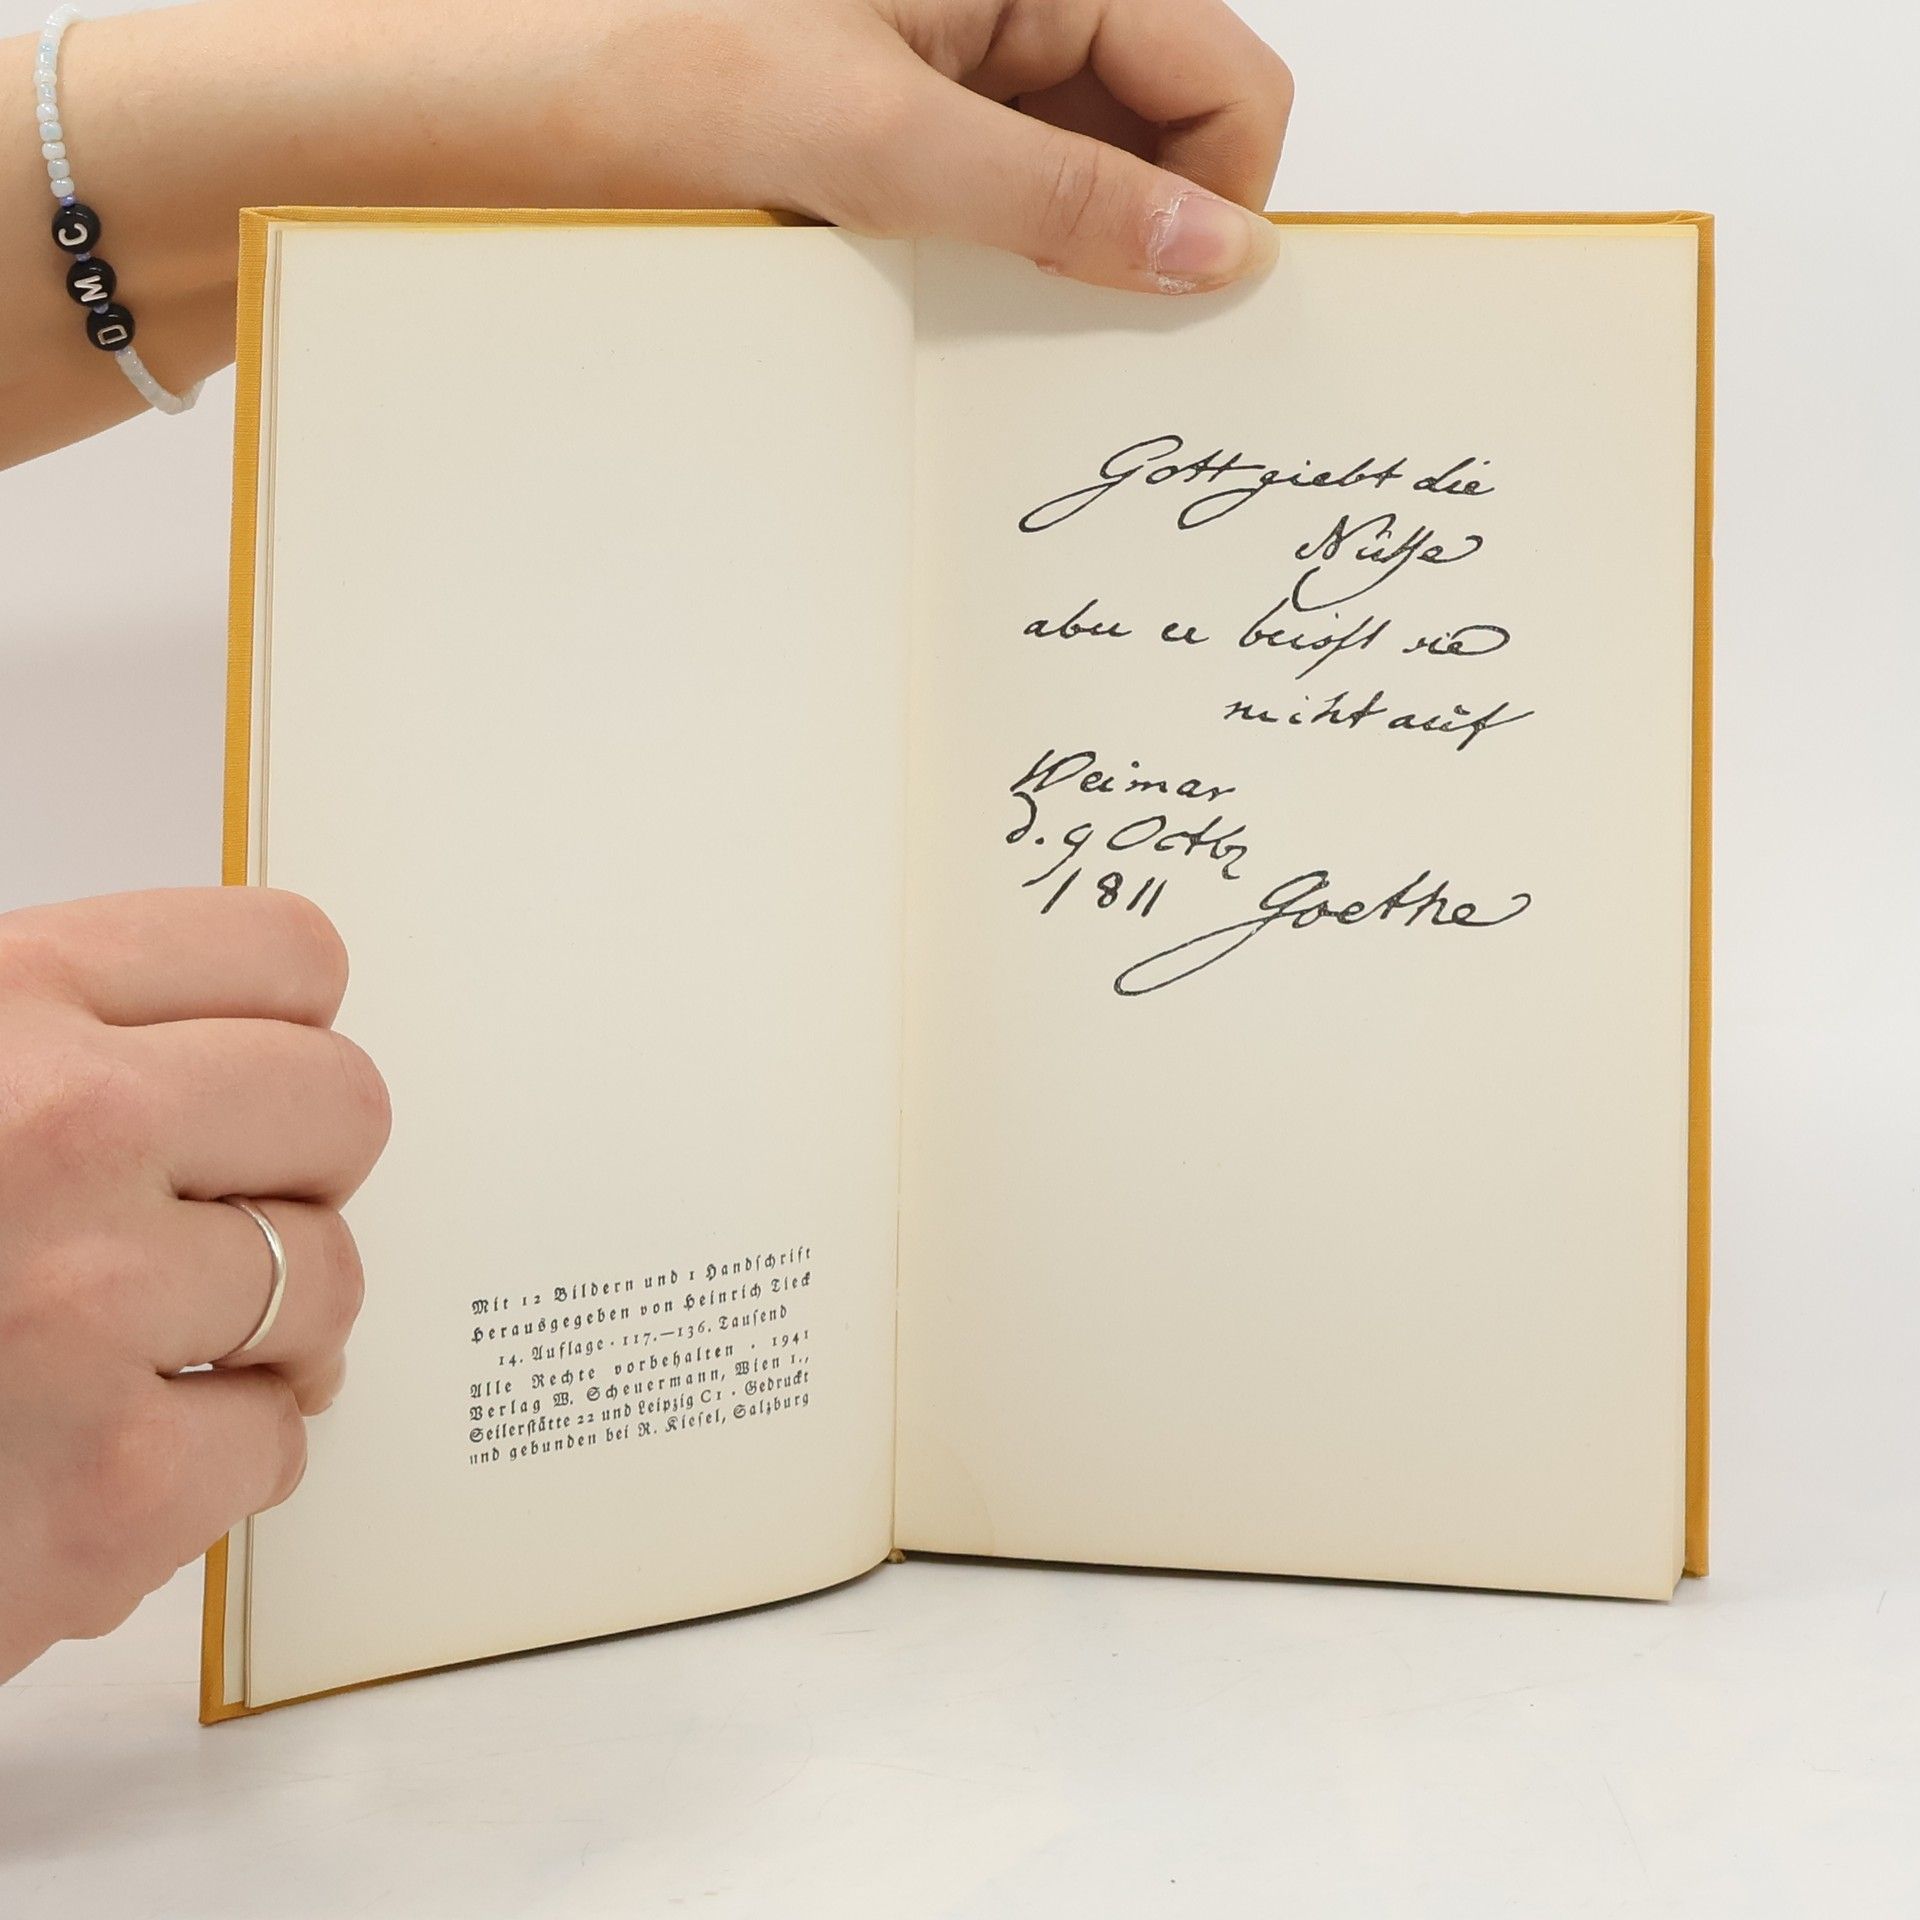 C
M
D
Mit 12 Bildern und 1 Handschrift
Herausgegeben von Heinrich Tieck
14. Auflage · 117.—136. Tausend
Alle Rechte vorbehalten · 1941
Verlag W. Scheuermann, Wien I.,
Seilerstätte 22 und Leipzig C1 · Gedruckt
und gebunden bei R. Kiesel, Salzburg
Gott giebt die
Nüße
aber er beißt sie
nicht auf
Weimar
d. 9 Octbr
1811
Goethe